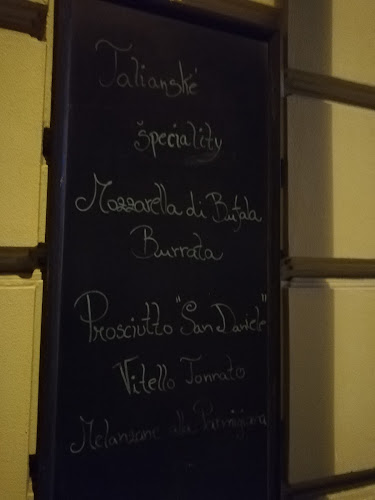 Talianské
špeciality
Mozzarella di Bufala
Burrata
Prosciutto "San Daniele"
Vitello Tonnato
Melanzane alla Parmigiana